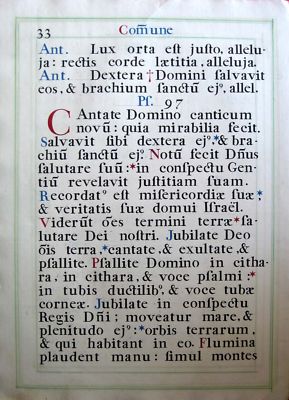 33 Com̃une
Ant. Lux orta eſt juſto, allelu-
ja: rectis corde lætitia, alleluja.
Ant. Dextera † Domini ſalvavit
eos, & brachium ſanctũ ejꝰ, allel.
Pſ. 97
CAntate Domino canticum
novũ: quia mirabilia fecit.
Salvavit ſibi dextera ejꝰ:* & bra-
chiũ ſanctũ ejꝰ. Notũ fecit Dñus
ſalutare ſuũ:* in conſpectu Gen-
tiũ revelavit juſtitiam ſuam.
Recordatꝰ eſt miſericordiæ ſuæ:*
& veritatis ſuæ domui Iſraël.
Viderũt oẽs termini terræ* ſa-
lutare Dei noſtri. Jubilate Deo
oĩs terra,* cantate, & exultate, &
pſallite. Pſallite Domino in citha-
ra, in cithara, & voce pſalmi:*
in tubis ductilibꝰ, & voce tubæ
corneæ. Jubilate in conſpectu
Regis Dñi; moveatur mare, &
plenitudo ejꝰ:* orbis terrarum,
& qui habitant in eo. Flumina
plaudent manu: ſimul montes